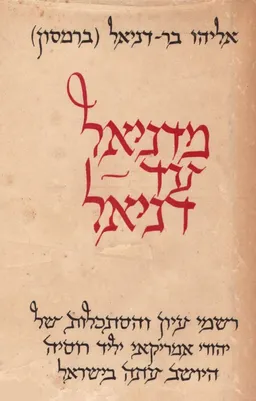 אליהו בר-דניאל (ברמסון)
מדניאל
עד
דניאל
רשמי עיון והסתכלות של
יהודי אמריקאי יליד רוסיה
היושב עתה בישראל